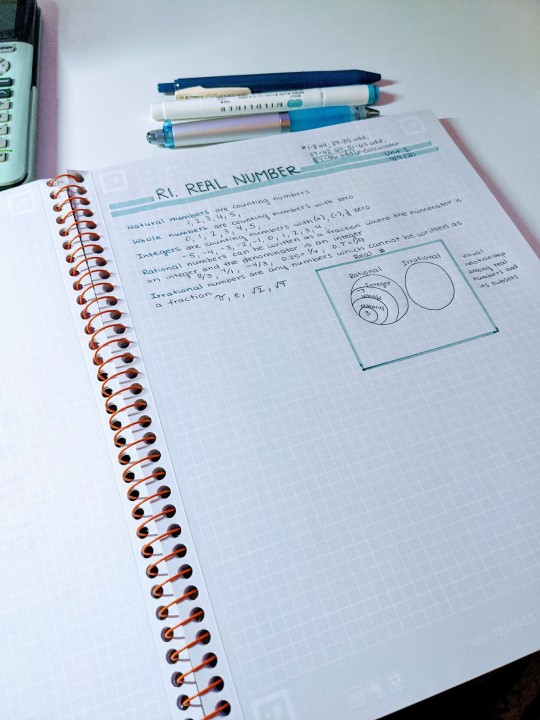 MILDLINER
#1-8 all, 29-35 odd,
37-42 all, 51-63 odd,
Calculator
Unit 1
R1. REAL NUMBER
Natural numbers are counting numbers
1, 2, 3, 4, 5,
Whole numbers are counting numbers with zero
0, 1, 2, 3, 4, 5,
Integers are counting numbers with (+), (-), & zero
-5, -4, -3, -2, -1, 0, 1, 2, 3, 4,
Rational numbers can be written as a fraction where the numerator is
an integer and the denominator is an integer
2/3, -4/3, 0.25 = 1/4,
Irrational numbers are any numbers which cannot be written as
a fraction π, e, √2,
Real #
Rational
Irrational
Integer
Whole
Natural
3
Visual
relationship
among real
numbers and
its subsets